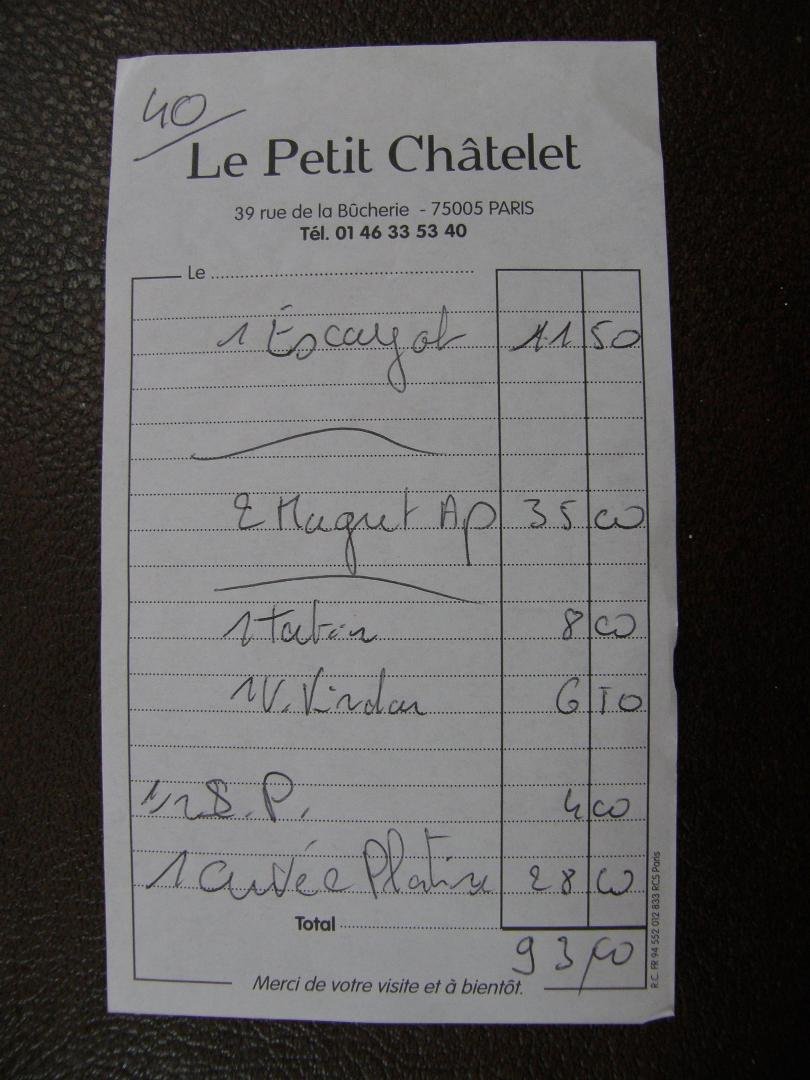 40
Le Petit Châtelet
39 rue de la Bûcherie - 75005 PARIS
Tél. 01 46 33 53 40
Le
1 Escargot 11 50
2 Magret Ap 35 00
1 tatin 8 00
1 V. 6 50
1/2 S.P. 4 00
1 Cuvée Platine 28 00
Total
93,00
Merci de votre visite et à bientôt.
R.C. FR 94 552 012 833 RCS Paris